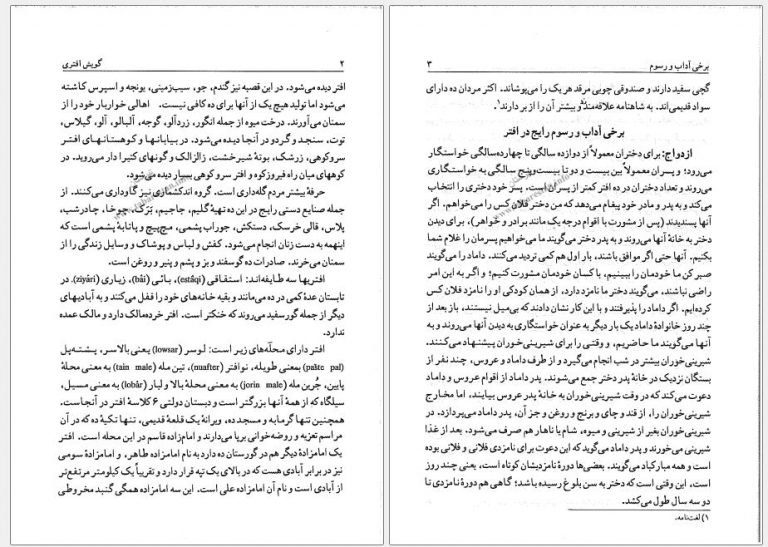 ۲ گویش افتری
افتر دیده می‌شود. در این قصبه نیز گندم، جو، سیب‌زمینی، یونجه و اسپرس کاشته
می‌شود اما تولید هیچ یک از آنها برای ده کافی نیست. اهالی خواربار خود را از
سمنان می‌آورند. درخت میوه از جمله انگور، زردآلو، گوجه، آلبالو، آلو، گیلاس،
توت، سنجد و گردو در آنجا دیده می‌شود. در بیابانها و کوهستانهای افتر
سروکوهی، زرشک، بوتهٔ شیرخشت، زالزالک و گونهای کتیرا دار می‌روید. در
کوههای میان راه فیروزکوه و افتر سروکوهی بسیار دیده می‌شود.
حرفهٔ بیشتر مردم گله‌داری است. گروه اندکشماری نیز گاوداری می‌کنند. از
جمله صنایع دستی رایج در این ده تهیهٔ گلیم، جاجیم، بَرَک، چوخا، چادرشب،
پلاس، قالی خرسک، دستکش، جوراب پشمی، مچ‌پیچ و پاتابهٔ پشمی است که
اینهمه به دست زنان انجام می‌شود. کفش و لباس و پوشاک و وسایل زندگی را از
سمنان می‌خرند. صادرات ده گوسفند و بز و پشم و پنیر و روغن است.
افتریها سه طایفه‌اند: استقاقی (estâqi)، بائی (bâi)، زیاری (ziyâri). در
تابستان عدهٔ کمی در ده می‌مانند و بقیه خانه‌های خود را قفل می‌کند و به آبادیهای
دیگر از جمله گورسفید می‌روند که خنکتر است. افتر خرده‌مالک دارد و مالک عمده
ندارد.
افتر دارای محله‌های زیر است: لوسر (lowsar) یعنی بالاسر، پشته‌پل
(pašte pal) بمعنی طویله، نوافتر (nuafter)، تین مله (tain male) به معنی محلهٔ
پایین، جُرین مله (jorin male) به معنی محلهٔ بالا و لبار (lobâr) به معنی مسیل،
سیلگاه که از همهٔ آنها بزرگتر است و دبستان دولتی ۶ کلاسهٔ افتر در آنجاست.
همچنین تنها گرمابه و مسجد ده، ویرانهٔ یک قلعهٔ قدیمی، تنها تکیهٔ ده که در آن
مراسم تعزیه و روضه‌خوانی برپا می‌دارند و امامزاده قاسم در این محله است. افتر
یک امامزادهٔ دیگر هم در گورستان ده دارد به نام امامزاده طاهر، و امامزادهٔ سومی
نیز در برابر آبادی هست که در بالای یک تپه قرار دارد و تقریباً یک کیلومتر مرتفع‌تر
از آبادی است و نام آن امامزاده علی است. این سه امامزاده همگی گنبد مخروطی
برخی آداب و رسوم ۳
گچی سفید دارند و صندوقی چوبی مرقد هر یک را می‌پوشاند. اکثر مردان ده دارای
سواد قدیمی‌اند. به شاهنامه علاقه‌مند و بیشتر آن را از بر دارند۱.
برخی آداب و رسوم رایج در افتر
ازدواج: برای دختران معمولاً از دوازده سالگی تا چهارده‌سالگی خواستگار
می‌رود؛ و پسران معمولاً بین بیست و دو تا بیست‌وپنج سالگی به خواستگاری
می‌روند و تعداد دختران در ده افتر کمتر از پسران است. پسر خود دختری را انتخاب
می‌کند و به پدر و مادر خود پیغام می‌دهد که من دختر فلان کس را می‌خواهم. اگر
آنها پسندیدند (پس از مشورت با اقوام درجه یک مانند برادر و خواهر)، برای دیدن
دختر به خانهٔ آنها می‌روند و به پدر دختر می‌گویند ما می‌خواهیم پسرمان را غلام شما
بکنیم. آنها حتی اگر موافق باشند، بار اول هم کمی تردید می‌کنند. داماد را می‌گویند
صبر کن ما خودمان را ببینیم، با کسان خودمان مشورت کنیم؛ و اگر به این امر
راضی نباشند، می‌گویند دختر ما نامزد دارد، از همان کودکی او را نامزد فلان کس
کرده‌ایم. اگر داماد را پذیرفتند و با این کار نشان دادند که بی‌میل نیستند، باز بعد از
چند روز خانوادهٔ داماد یک بار دیگر به عنوان خواستگاری به دیدن آنها می‌روند و به
آنها می‌گویند ما حاضریم، و وقتی را برای شیرینی‌خوران پیشنهاد می‌کنند.
شیرینی‌خوران بیشتر در شب انجام می‌گیرد و از طرف داماد و عروس، چند نفر از
بستگان نزدیک در خانهٔ پدر دختر جمع می‌شوند. پدر داماد از اقوام عروس و داماد
دعوت می‌کند که در وقت شیرینی‌خوران به خانهٔ پدر عروس بیایند، اما مخارج
شیرینی‌خوران را، از قند و چای و برنج و روغن و جز آن، پدر داماد می‌پردازد. در
شیرینی‌خوران بغیر از شیرینی و میوه، شام یا ناهار هم صرف می‌شود. بعد از غذا
شیرینی می‌خورند و پدر داماد می‌گوید که این دعوت برای نامزدی فلانی و فلانی بوده
است و همه مبارکباد می‌گویند. بعضی‌ها دورهٔ نامزدیشان کوتاه است، یعنی چند روز
است، این وقتی است که دختر به سن بلوغ رسیده باشد؛ گاهی هم دورهٔ نامزدی تا
دو سه سال طول می‌کشد.
۱) لغت‌نامه.